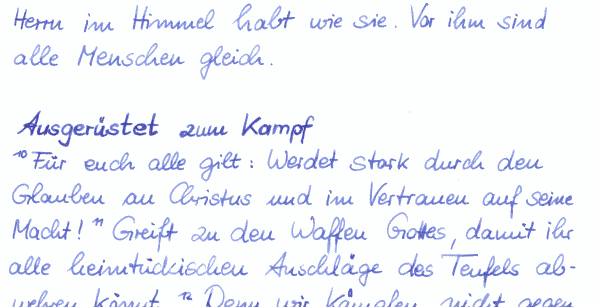 Herrn im Himmel habt wie sie. Vor ihm sind
alle Menschen gleich.
Ausgerüstet zum Kampf
¹⁰ Für euch alle gilt: Werdet stark durch den
Glauben an Christus und im Vertrauen auf seine
Macht! ¹¹ Greift zu den Waffen Gottes, damit ihr
alle heimtückischen Anschläge des Teufels ab-
wehren könnt. ¹² Denn wir kämpfen nicht gegen